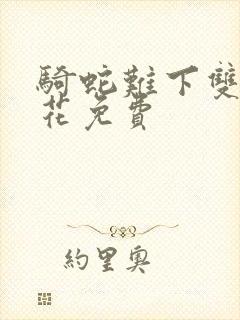 騎蛇難下雙
花免費
約里奧